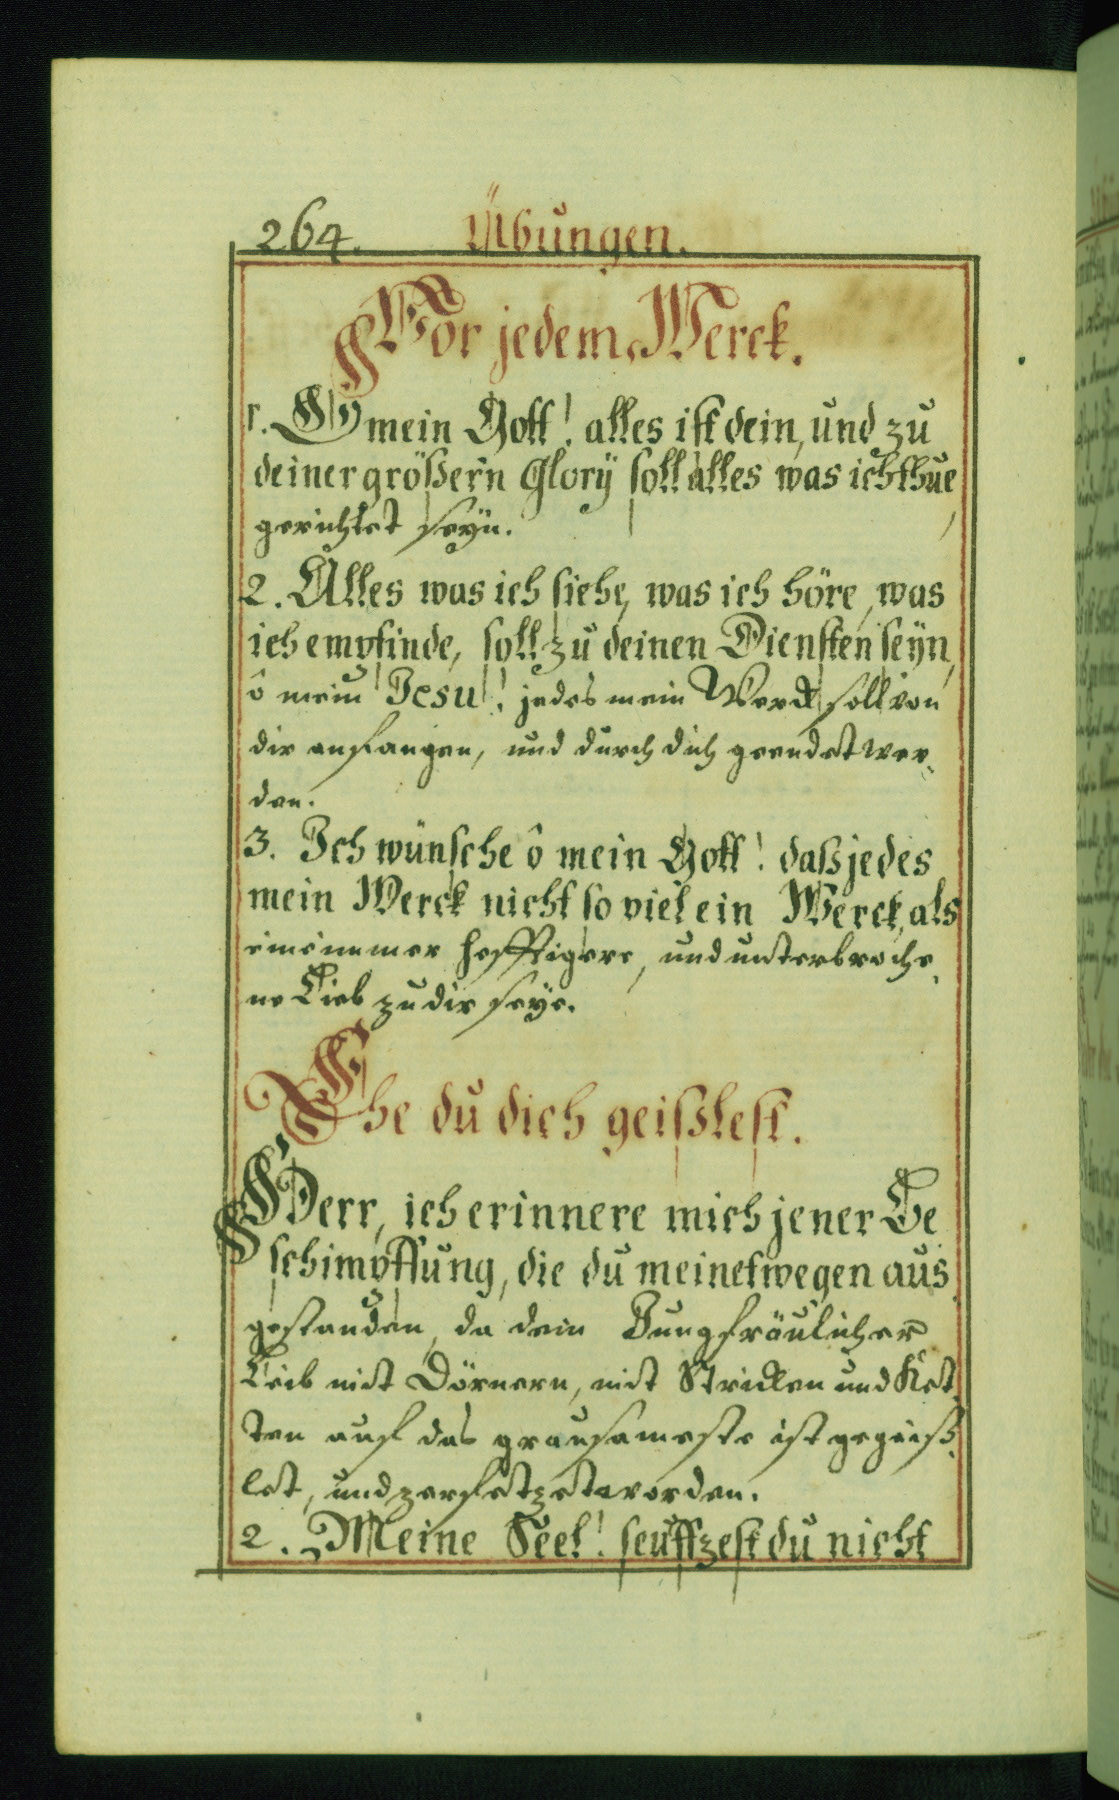 264. Übungen.
Vor jedem Werck.
1. O mein Gott! alles ist dein, und zu
deiner größern Glory soll alles was ich thue,
gerichtet seyn.
2. Alles was ich siehe, was ich höre, was
ich empfinde, soll zu deinen Diensten seyn,
ô mein Jesu! jedes mein Werck soll von
dir anfangen, und durch dich geendet wer-
den.
3. Ich wünsche ô mein Gott! daß jedes
mein Werck nicht so viel ein Werck, als
eine immer hefftigere, und unterbroche-
ne Lieb zu dir seye.
Ehe du dich geißlest.
Herr, ich erinnere mich jener Be
schimpffung, die du meinetwegen aus-
gestanden, da dein Jungfräulicher
Leib mit Dörnern, mit Stricken und Ket-
ten auf das grausameste ist gegeiß-
let, und zerfetzet worden.
2. Meine Seel! seuffzest du nicht